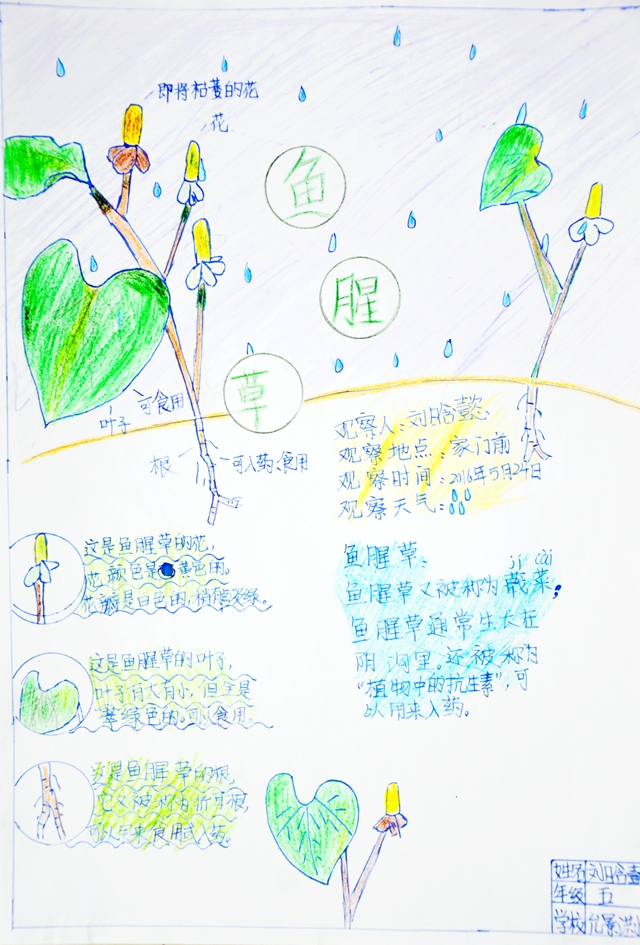 即将枯萎的花
花
鱼
腥
草
可食用
叶子
根
可入药、食用
观察人：刘日含懿
观察地点：家门前
观察时间：2016年5月24日
观察天气：
这是鱼腥草的花，
花颜色是黄色的。
花瓣是白色的，稍微发绿。
这是鱼腥草的叶子，
叶子有大有小，但全是
翠绿色的。可以食用。
这是鱼腥草的根，
它又被称为折耳根，
可以用来食用或入药。
鱼腥草：
jí cài
鱼腥草又被称为蕺菜；
鱼腥草通常生长在
阴沟里。还被称为
“植物中的抗生素”，可
以用来入药。
姓名 刘日含懿
年级 五
学校